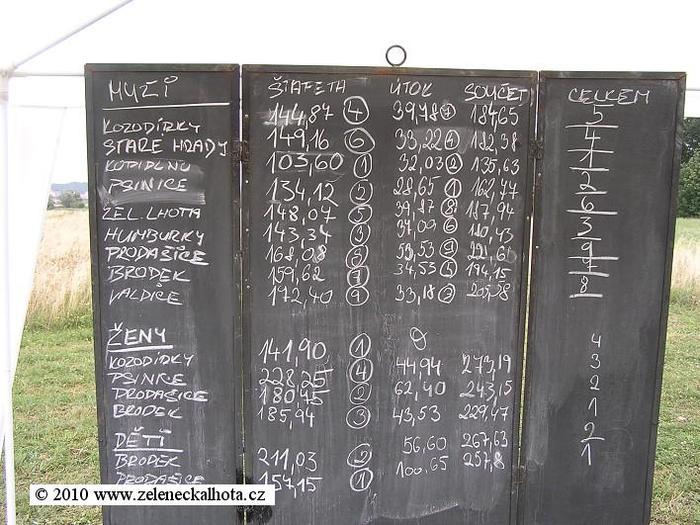 MUŽI ŠTAFETA ÚTOK SOUČET CELKEM
KOZODÍRKY 144,87 4 39,78 7 184,65 5
STARÉ HRADY 149,16 6 33,22 4 182,38 4
KOPIDLNO 103,60 1 32,03 2 135,63 1
PSINICE 134,12 2 28,65 1 162,77 2
ZEL. LHOTA 148,07 5 39,87 8 187,94 6
HUMBURKY 143,34 3 37,09 6 180,43 3
PRODAŠICE 168,08 53,53 9 221,61 9
BRODEK 159,62 7 34,53 5 194,15 7
VALDICE 172,40 9 33,18 205,58 8
ŽENY
KOZODÍRKY 141,90 1 4
PSINICE 228,25 4 44,94 273,19 3
PRODAŠICE 180,45 2 62,40 243,15 2
BRODEK 185,94 3 43,53 229,47 1
DĚTI
BRODEK 211,03 2 56,60 267,63 2
PRODAŠICE 157,15 1 100.65 257,8 1
© 2010 www.zeleneckalhota.cz